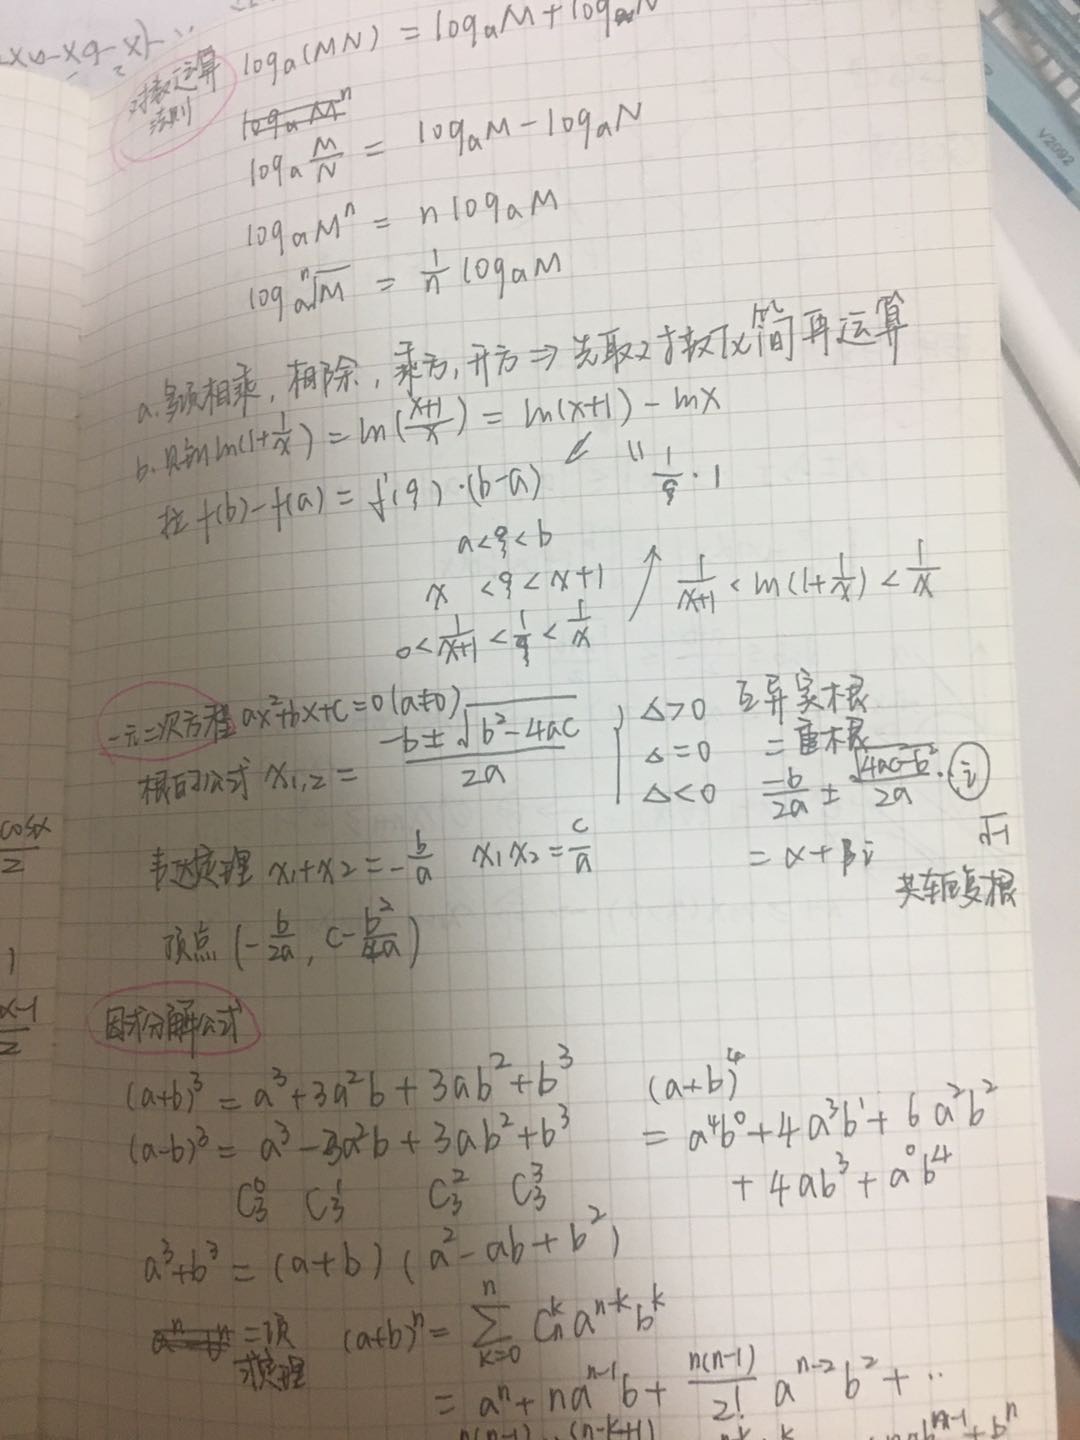 对数运算法则
logₐ(MN) = logₐM + logₐN
logₐ M/N = logₐM − logₐN
logₐMⁿ = n logₐM
logₐ ⁿ√M = 1/n logₐM
a. 多项相乘, 相除, 乘方, 开方 ⇒ 先取对数化简再运算
b. 见到 ln(1+1/x) = ln((x+1)/x) = ln(x+1) − lnx
拉 f(b)−f(a) = f'(ξ)·(b−a) ⇙ " 1/ξ · 1
a<ξ<b
x <ξ< x+1 ↗ 1/(x+1) < ln(1+1/x) < 1/x
0 < 1/(x+1) < 1/ξ < 1/x
一元二次方程 ax²+bx+c=0 (a≠0)
根的公式 x₁,₂ = (−b ± √(b²−4ac))/2a
Δ>0 互异实根
Δ=0 二重根
Δ<0 −b/2a ± √(4ac−b²)/2a · i
√−1
= α + βi
共轭复根
韦达定理 x₁+x₂ = −b/a x₁x₂ = c/a
顶点 (−b/2a, c−b²/4a)
因式分解公式
(a+b)³ = a³+3a²b+3ab²+b³
(a−b)³ = a³−3a²b+3ab²+b³
C₃⁰ C₃¹ C₃² C₃³
(a+b)⁴
= a⁴b⁰+4a³b¹+6a²b²
+4ab³+a⁰b⁴
a³+b³ = (a+b)(a²−ab+b²)
二项式定理 (a+b)ⁿ = Σ(k=0→n) Cₙᵏ aⁿ⁻ᵏbᵏ
= aⁿ+naⁿ⁻¹b+ n(n−1)/2! aⁿ⁻²b²+··
cosx/2
1
x−1/2
V2092